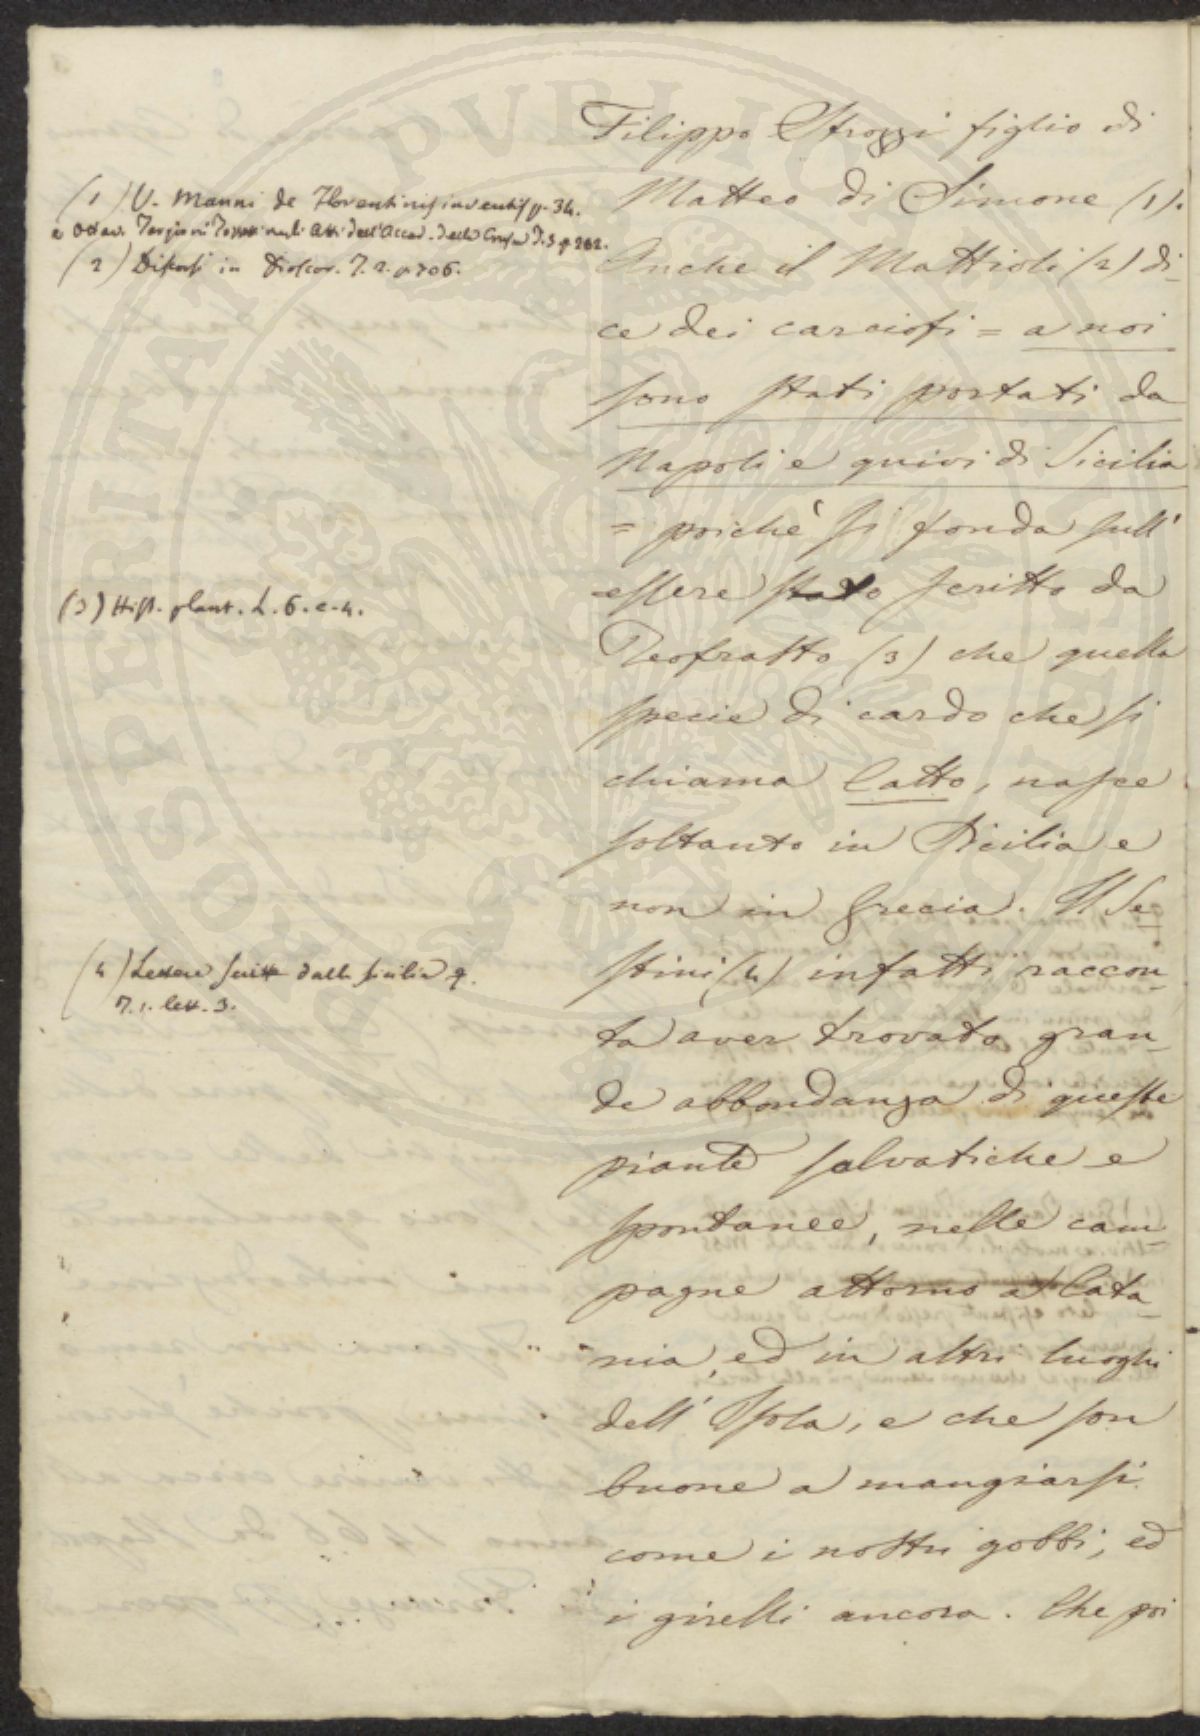 Filippo Strozzi figlio di
Matteo di Simone (1).
Anche il Mattioli (2) di-
ce dei carciofi = a noi
sono stati portati da
Napoli e quivi di Sicilia
= poichè si fonda sull'
essere stato scritto da
Teofrasto (3) che quella
specie di cardo che si
chiama Catto, nasce
soltanto in Sicilia e
non in Grecia. Il Se-
stini (4) infatti raccon-
ta aver trovato gran-
de abbondanza di queste
piante salvatiche e
spontanee, nelle cam-
pagne attorno a Cata-
nia, ed in altri luoghi
dell' Isola, e che son
buone a mangiarsi
come i nostri gobbi, ed
i girelli ancora. Che poi
(1) V. Manni de Florentinis inventis p. 34.
e Ottav. Targioni Tozzetti negli Atti dell'Accad. della Crusca T. 3 p. 262.
(2) Discorsi in Dioscor. T. 2. p. 706.
(3) Hist. plant. L. 6. c. 4.
(4) Lettere scritte dalla Sicilia
T. 1. lett. 3.
PROSPERITATI PVBLICAE